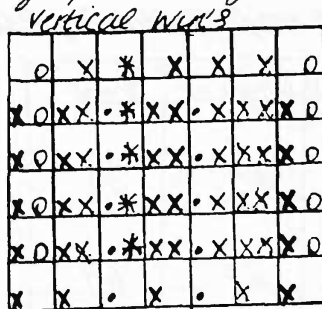 vertical Win's
O X * X X X O
X O X X . * X X . X X X X O
X O X X . * X X . X X X X O
X O X X . * X X . X X X X O
X O X X . * X X . X X X X O
X X . X . X X